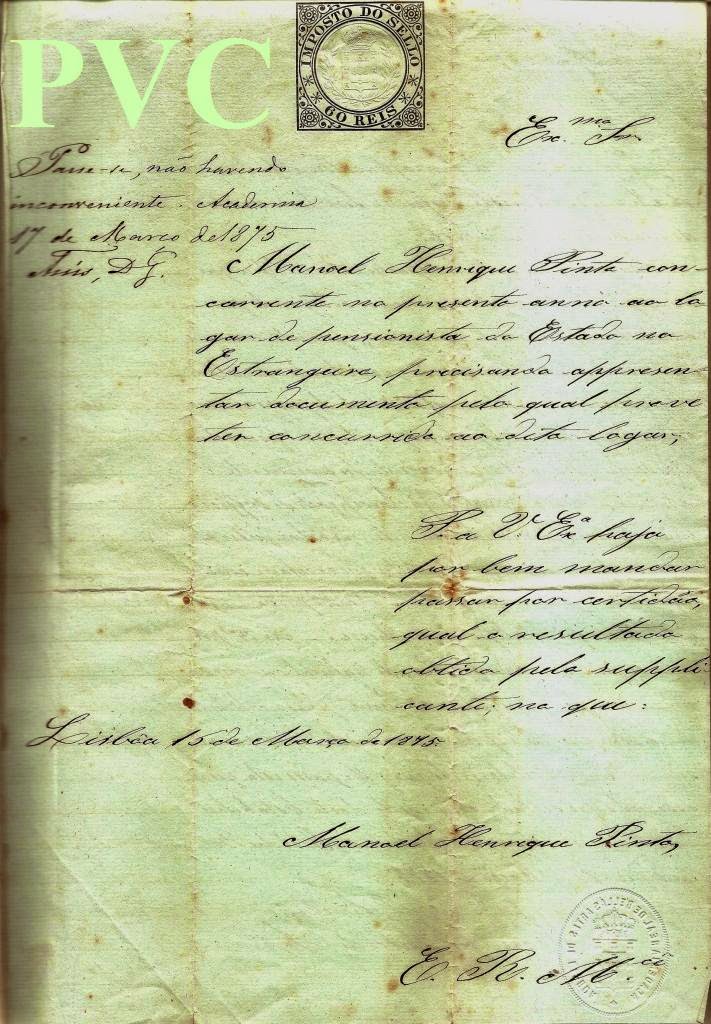 PVC
IMPOSTO DO SELLO
60 REIS
Exc.mo Sr.
Passe-se, não havendo
inconveniente. Academia
17 de Março de 1875
D. G.
Manoel Henrique Pinto con-
corrente no presente anno ao lo
gar de pensionista do Estado no
Estrangeiro, precisando appresen-
tar documento pelo qual prove
ter concorrido ao dito logar;
P. a V.ª Exª haja
por bem mandar
passar por certidão,
qual o resultado
obtido pelo suppli
cante; no que:
Lisbôa 15 de Março de 1875.
Manoel Henrique Pinto,
E. R. M.cê